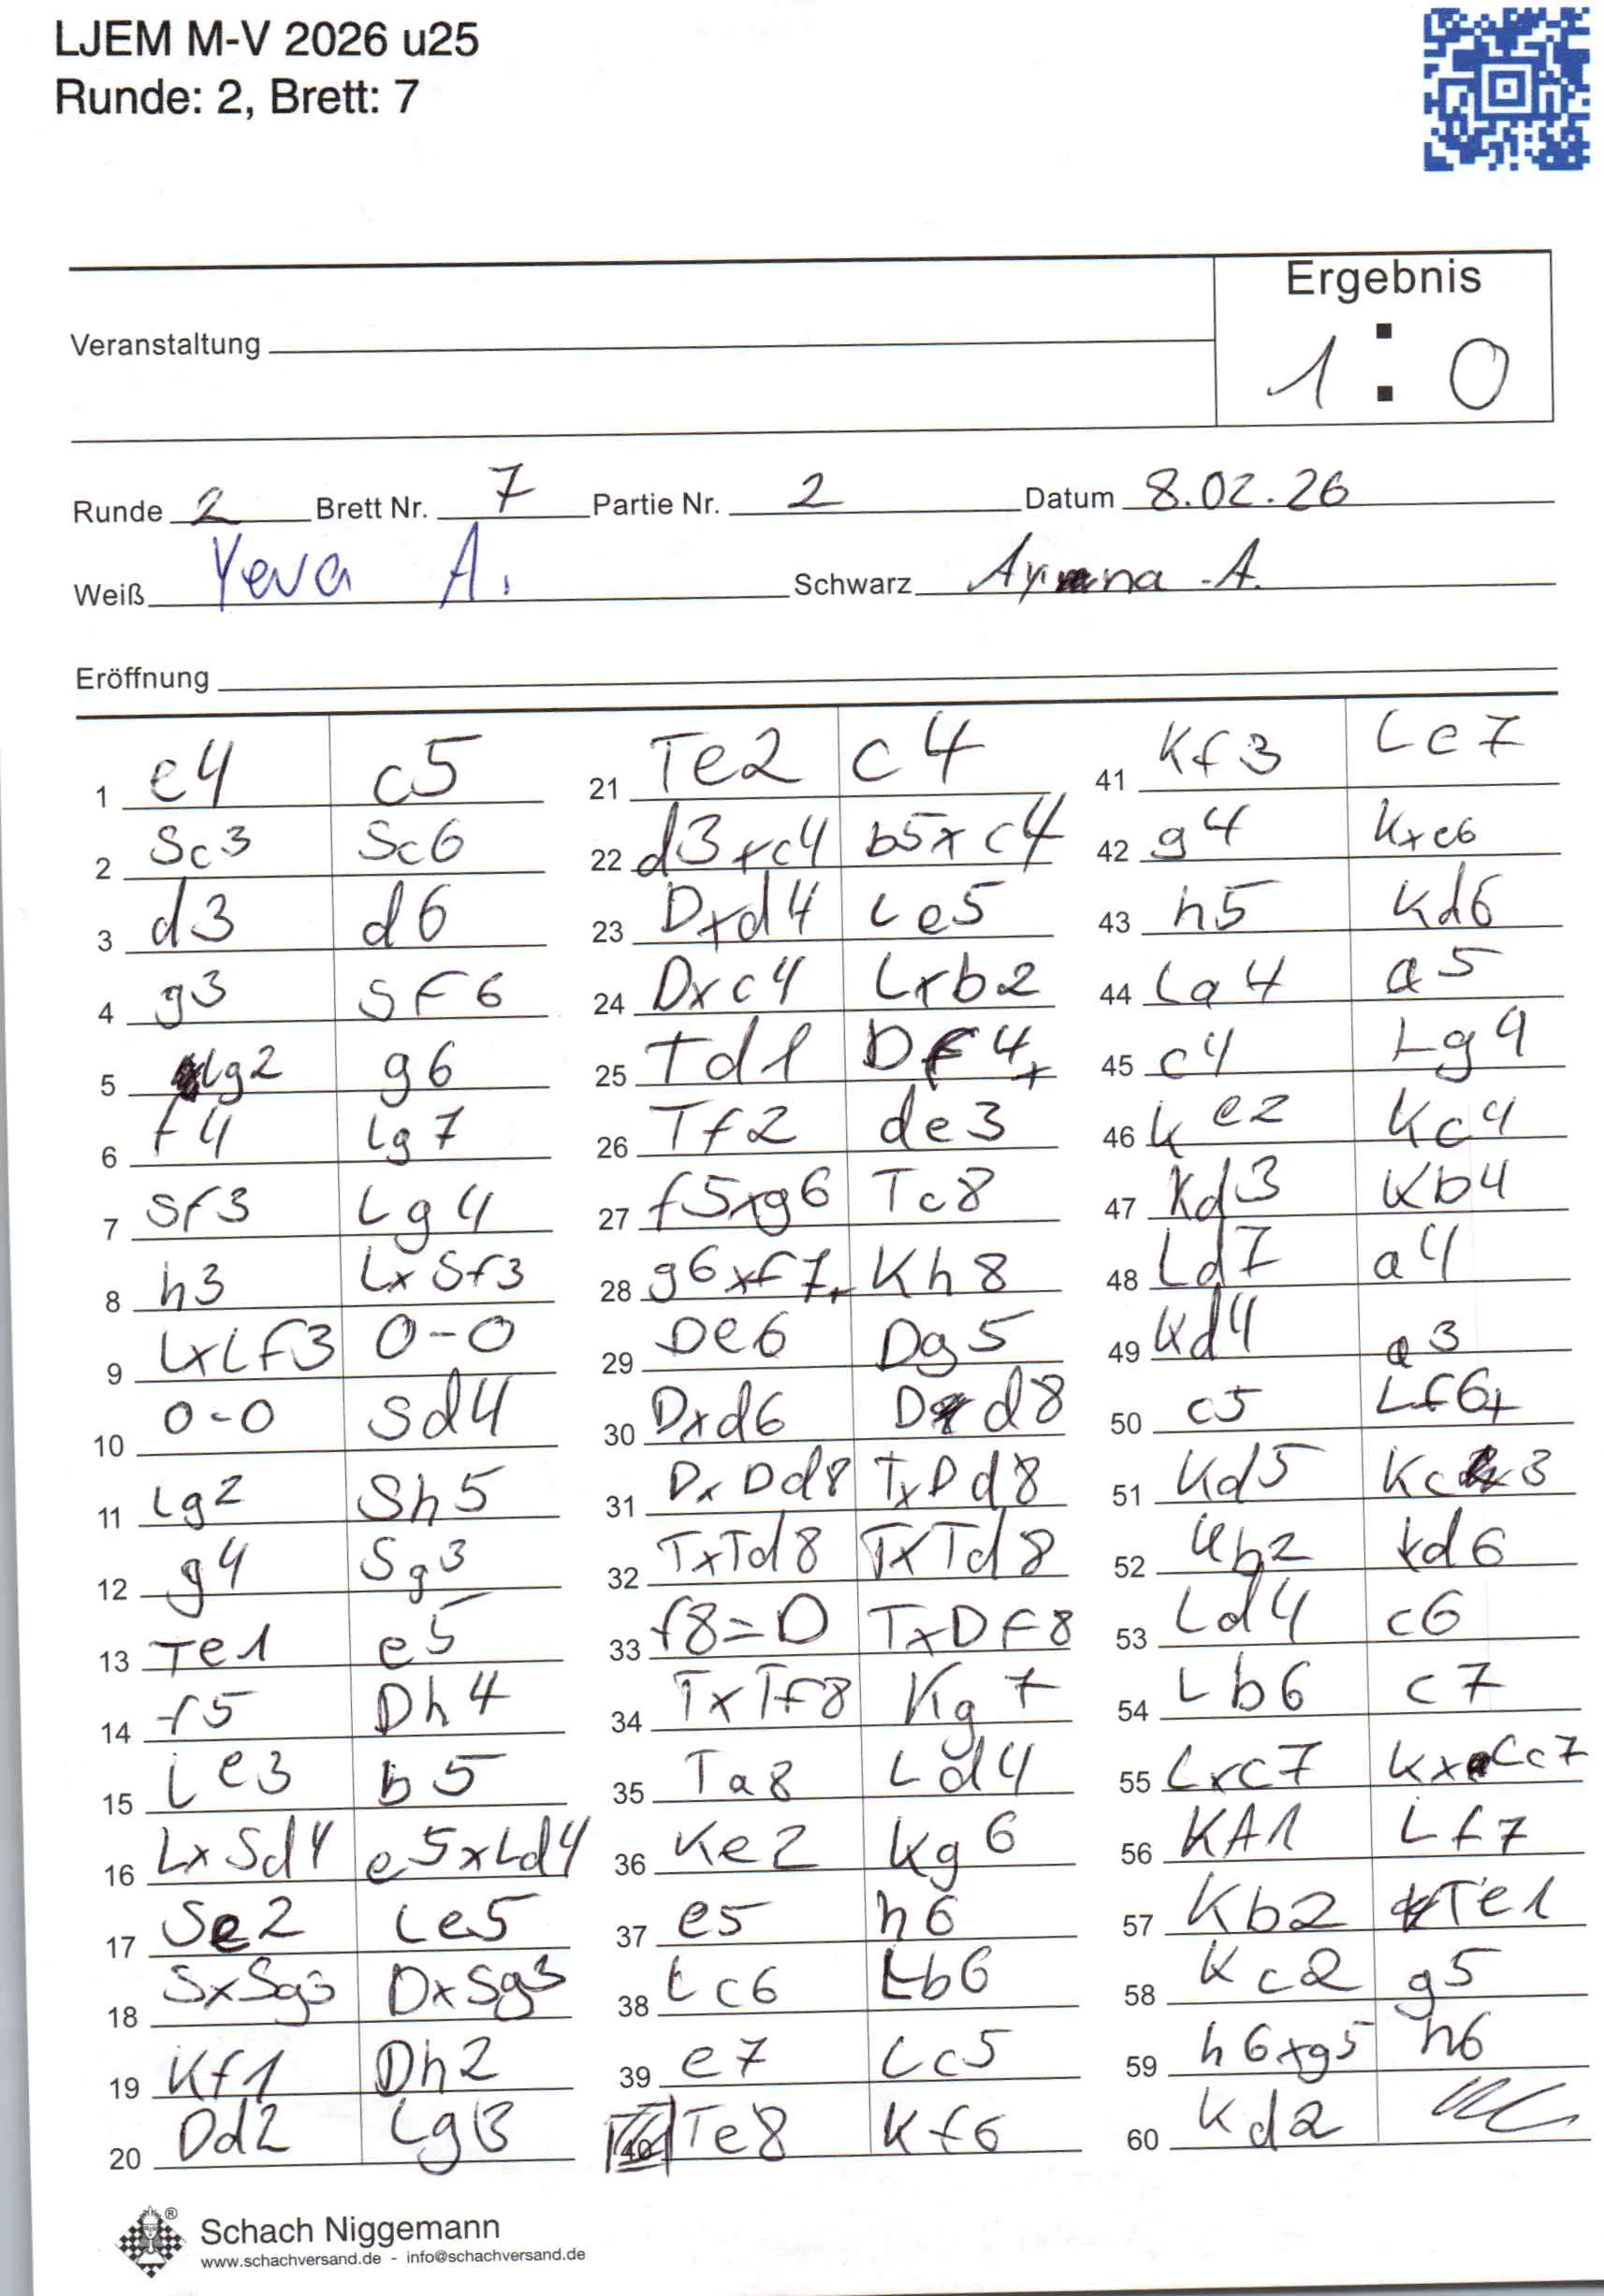 LJEM M-V 2026 u25
Runde: 2, Brett: 7
Ergebnis
Veranstaltung
1 : 0
Runde 2 Brett Nr. 7 Partie Nr. 2 Datum 8.02.26
Weiß Yeva A. Schwarz A.
Eröffnung
1 e4 c5
2 Sc3 Sc6
3 d3 d6
4 g3 Sf6
5 Lg2 g6
6 f4 Lg7
7 Sf3 Lg4
8 h3 LxSf3
9 LxLf3 0-0
10 0-0 Sd4
11 Lg2 Sh5
12 g4 Sg3
13 Te1 e5
14 f5 Dh4
15 Le3 b5
16 LxSd4 e5xLd4
17 Se2 Le5
18 SxSg3 DxSg3
19 Kf1 Dh2
20 Dd2 Lg3
21 Te2 c4
22 d3xc4 b5xc4
23 Dxd4 Le5
24 Dxc4 Lxb2
25 Td1 Df4+
26 Tf2 de3
27 f5xg6 Tc8
28 g6xf7+ Kh8
29 De6 Dg5
30 Dxd6 Dd8
31 DxDd8 TxDd8
32 TxTd8 TxTd8
33 f8=D TxDF8
34 TxTf8 Kg7
35 Ta8 Ld4
36 Ke2 Kg6
37 e5 h6
38 Lc6 Lb6
39 e7 Lc5
40 Te8 Kf6
41 Kf3 Le7
42 g4 Kxe6
43 h5 Kd6
44 La4 a5
45 c4 Lg4
46 Ke2 Kc4
47 Kd3 Kb4
48 Ld7 a4
49 Kd4 a3
50 c5 Lf6+
51 Kd5 Kc3
52 Kb2 Kd6
53 Ld4 c6
54 Lb6 c7
55 Lxc7 KxLc7
56 KA1 Lf7
57 Kb2 Te1
58 Kc2 g5
59 h6xg5 h6
60 Kd2
®
Schach Niggemann
www.schachversand.de - info@schachversand.de